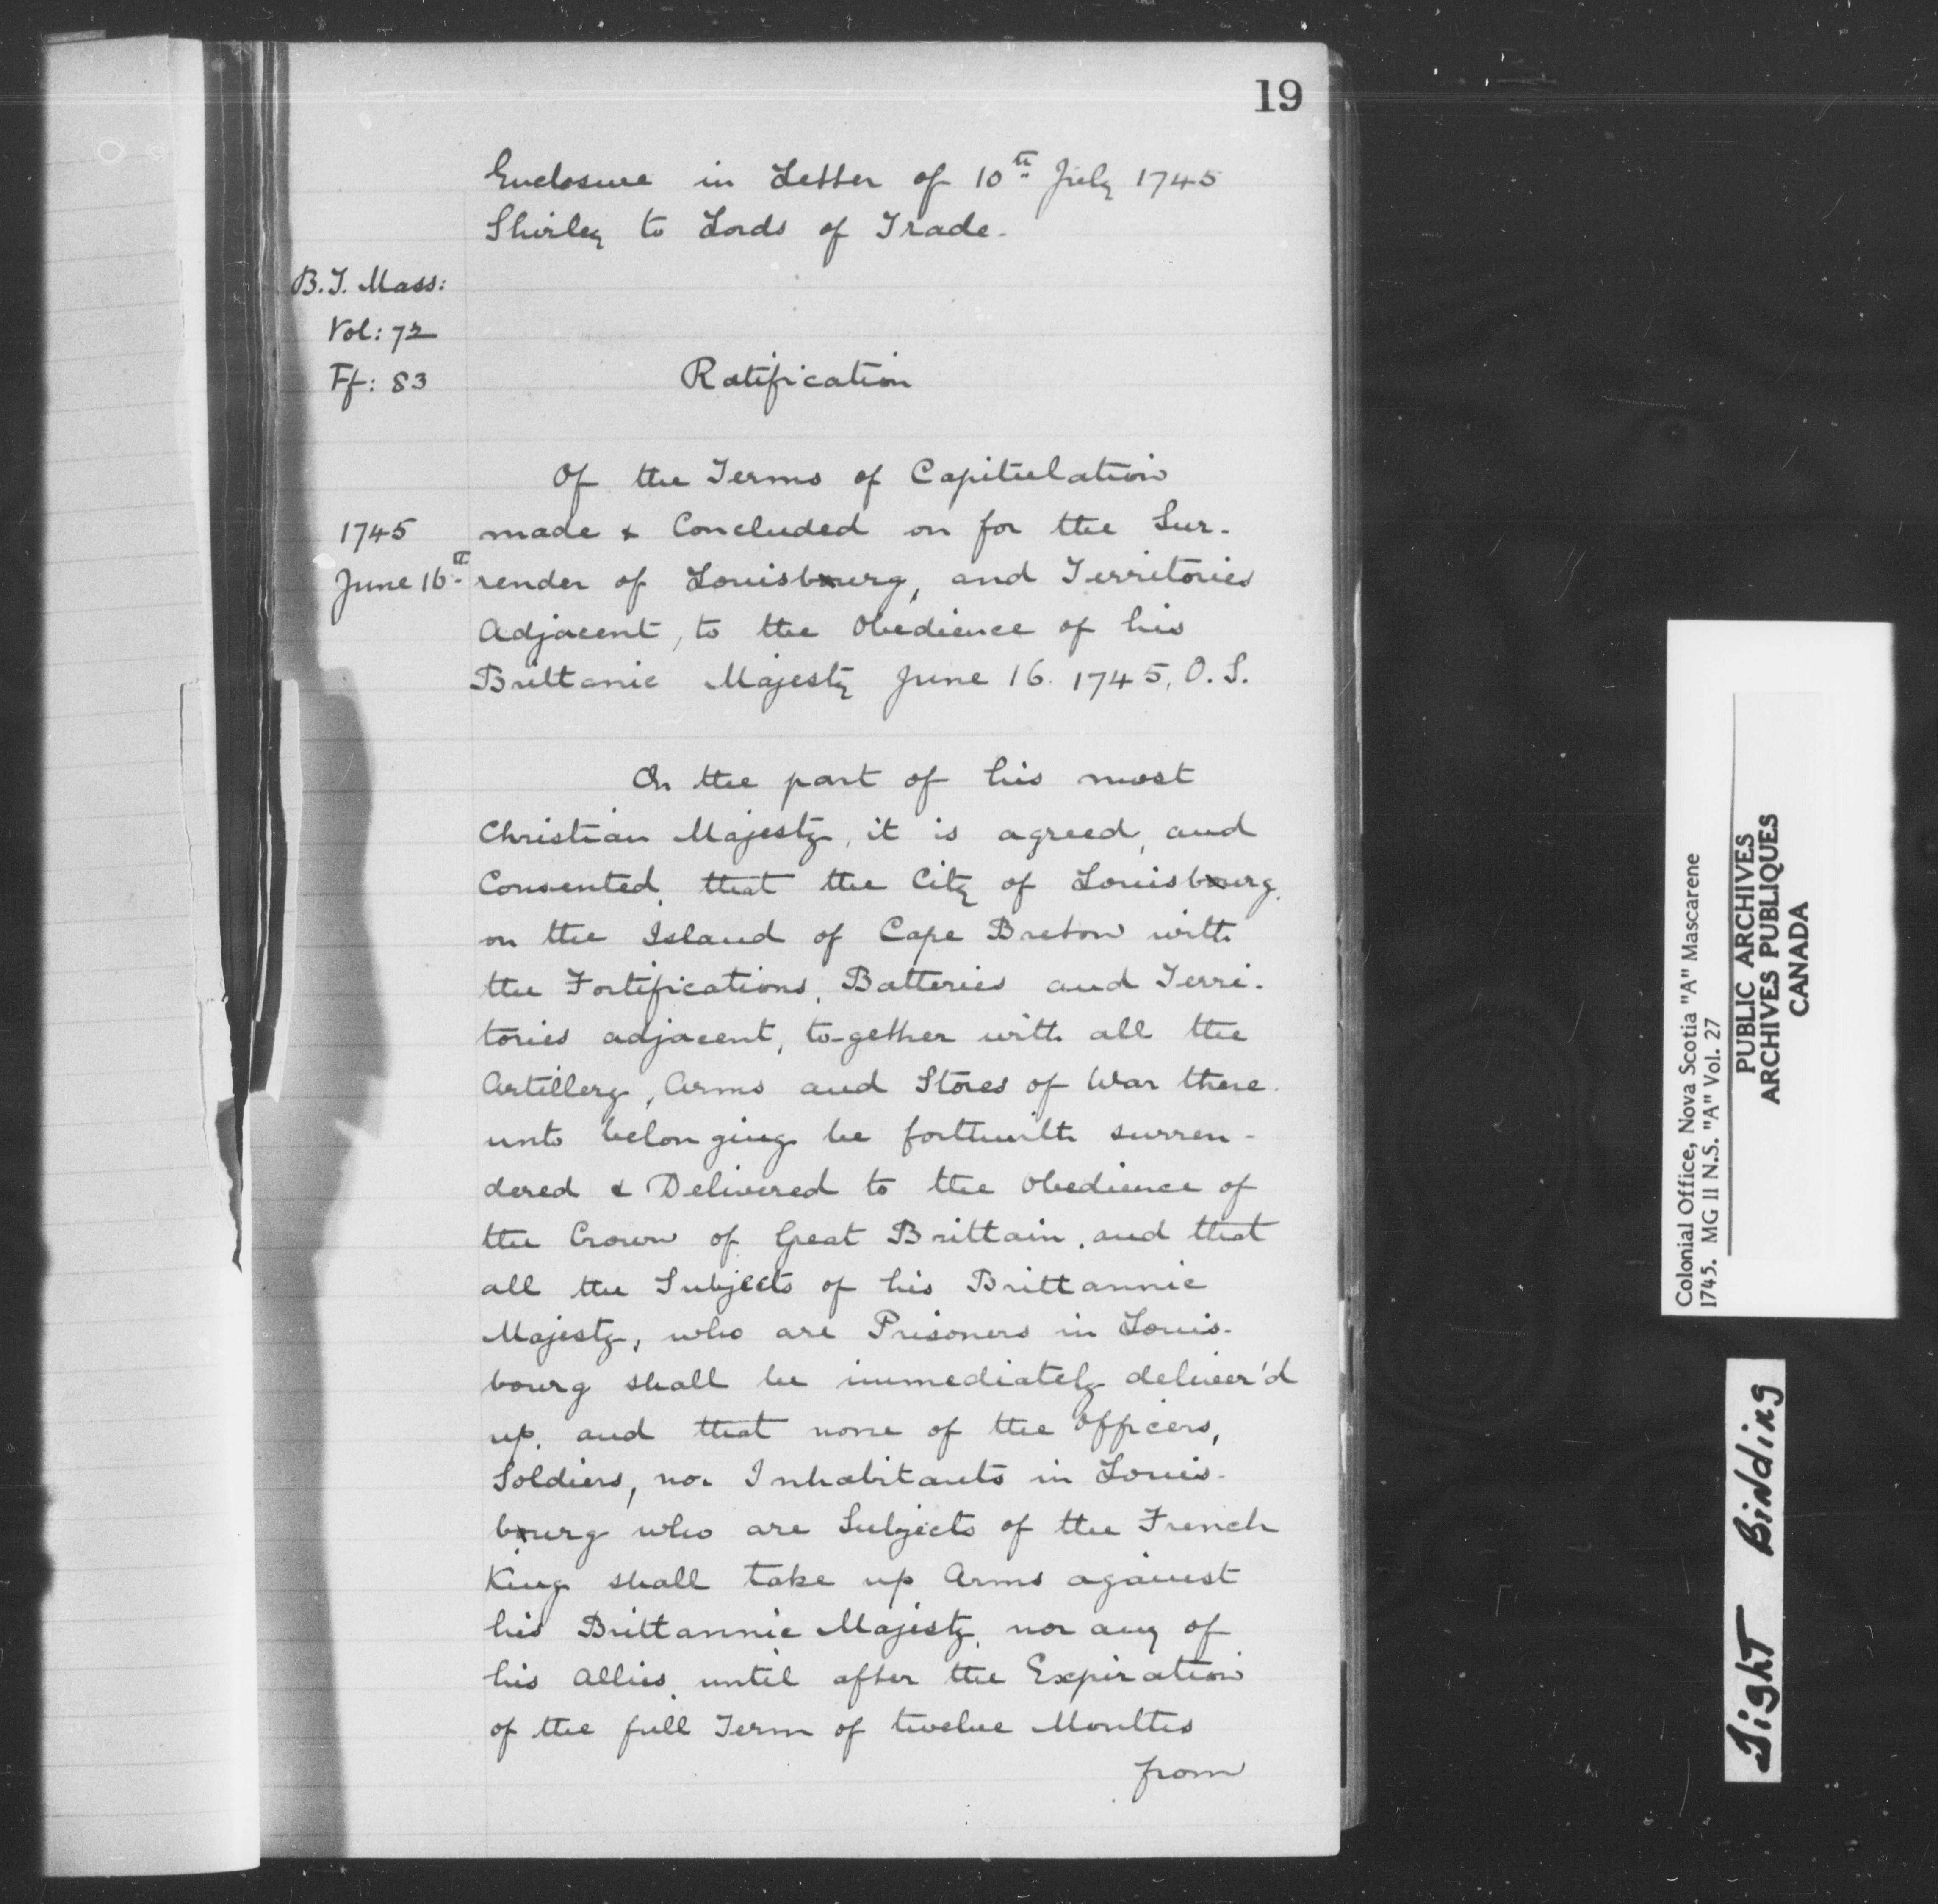 19
Enclosure in Letter of 10th July 1745
Shirley to Lords of Trade.
B.T. Mass:
Vol: 72
Ff: 83
Ratification
Of the Terms of Capitulation
1745
made & Concluded on for the Sur-
June 16th
render of Louisbourg, and Territories
Adjacent, to the Obedience of his
Brittanic Majesty June 16. 1745, O.S.
On the part of his most
Christian Majesty, it is agreed, and
Consented, that the City of Louisbourg,
on the Island of Cape Breton with
the Fortifications, Batteries and Terri-
tories adjacent, to-gether with all the
Artillery, Arms and Stores of War there-
unto belonging be forthwith surren-
dered & Delivered to the Obedience of
the Crown of Great Brittain, and that
all the Subjects of his Brittannic
Majesty, who are Prisoners in Louis-
bourg shall be immediately deliver'd
up, and that none of the Officers,
Soldiers, nor Inhabitants in Louis-
bourg who are Subjects of the French
King shall take up Arms against
his Brittannic Majesty, nor any of
his Allies, until after the Expiration
of the full Term of twelve Months
from
Colonial Office, Nova Scotia "A" Mascarene
1745. MG 11 N.S. "A" Vol. 27
PUBLIC ARCHIVES
ARCHIVES PUBLIQUES
CANADA
Tight Binding